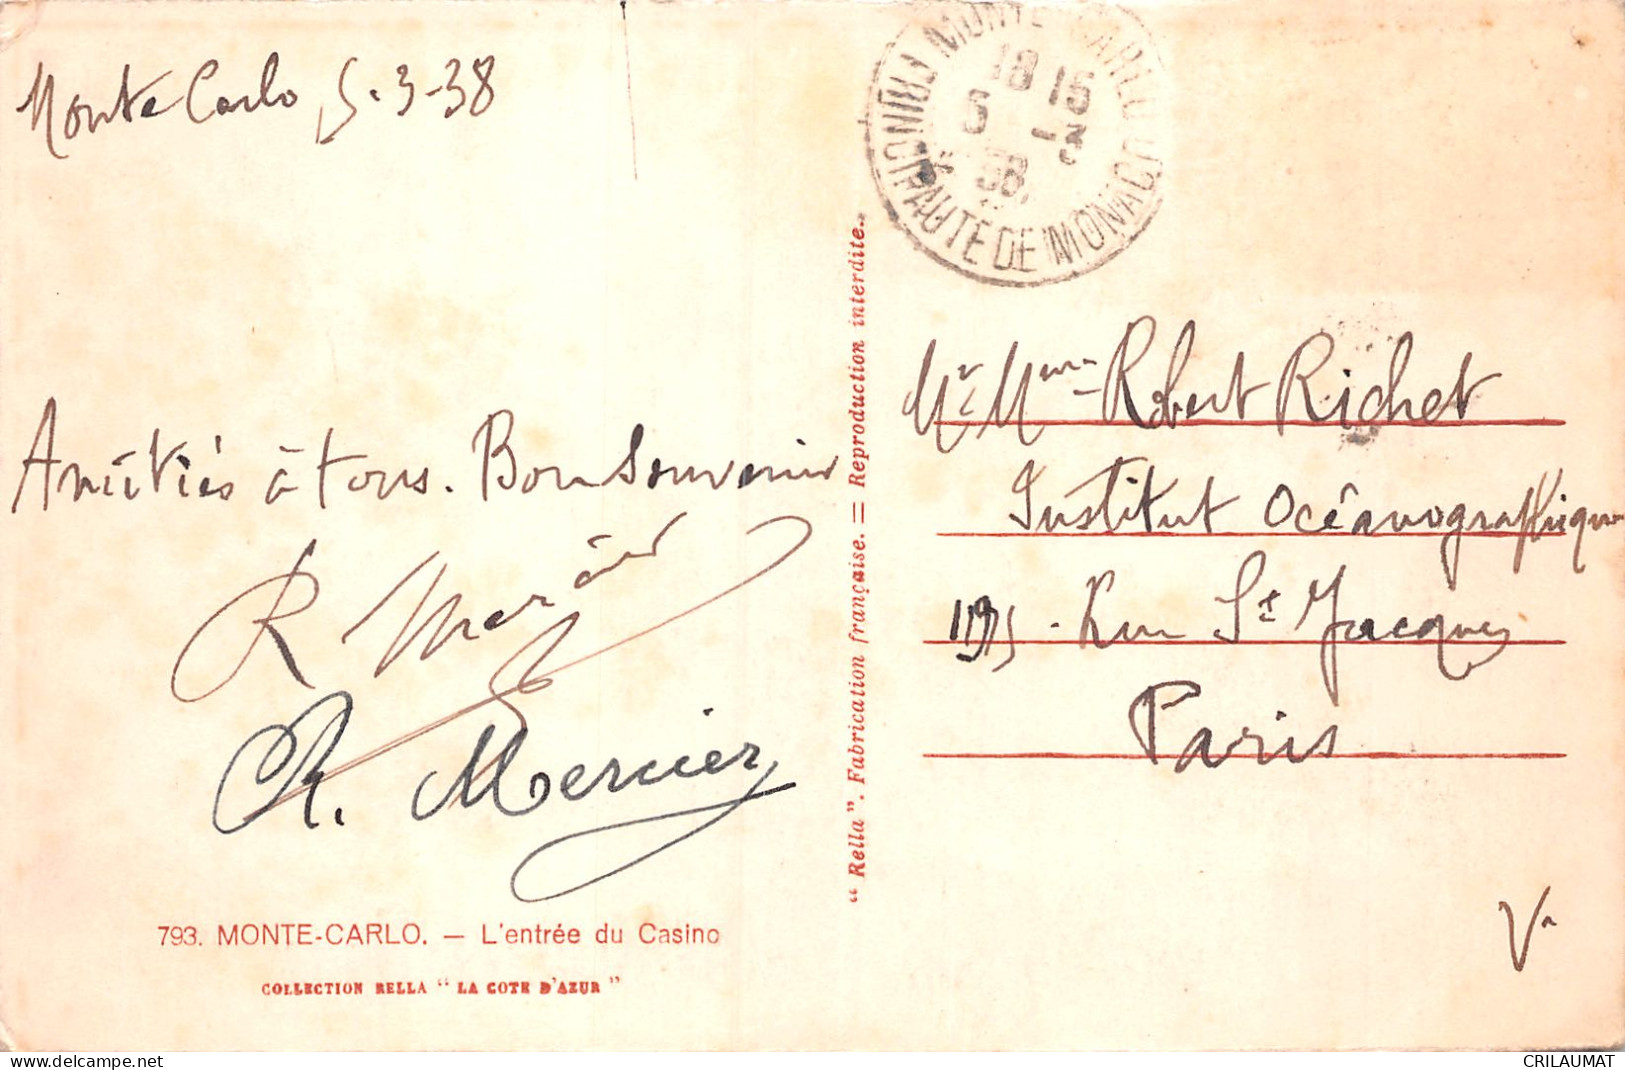 Monte Carlo 5-3-38
Amitiés à tous. Bon Souvenir
R
R. Mercier
793. MONTE-CARLO. — L'entrée du Casino
COLLECTION RELLA “ LA COTE D'AZUR ”
“ Rella ”. Fabrication française. = Reproduction interdite.
MONTE-CARLO
PRINCIPAUTÉ DE MONACO
18 15
5 -3
38
Mr & Mme Robert Richet
Institut Océanographique
195 . Rue St Jacques
Paris
CRILAUMAT